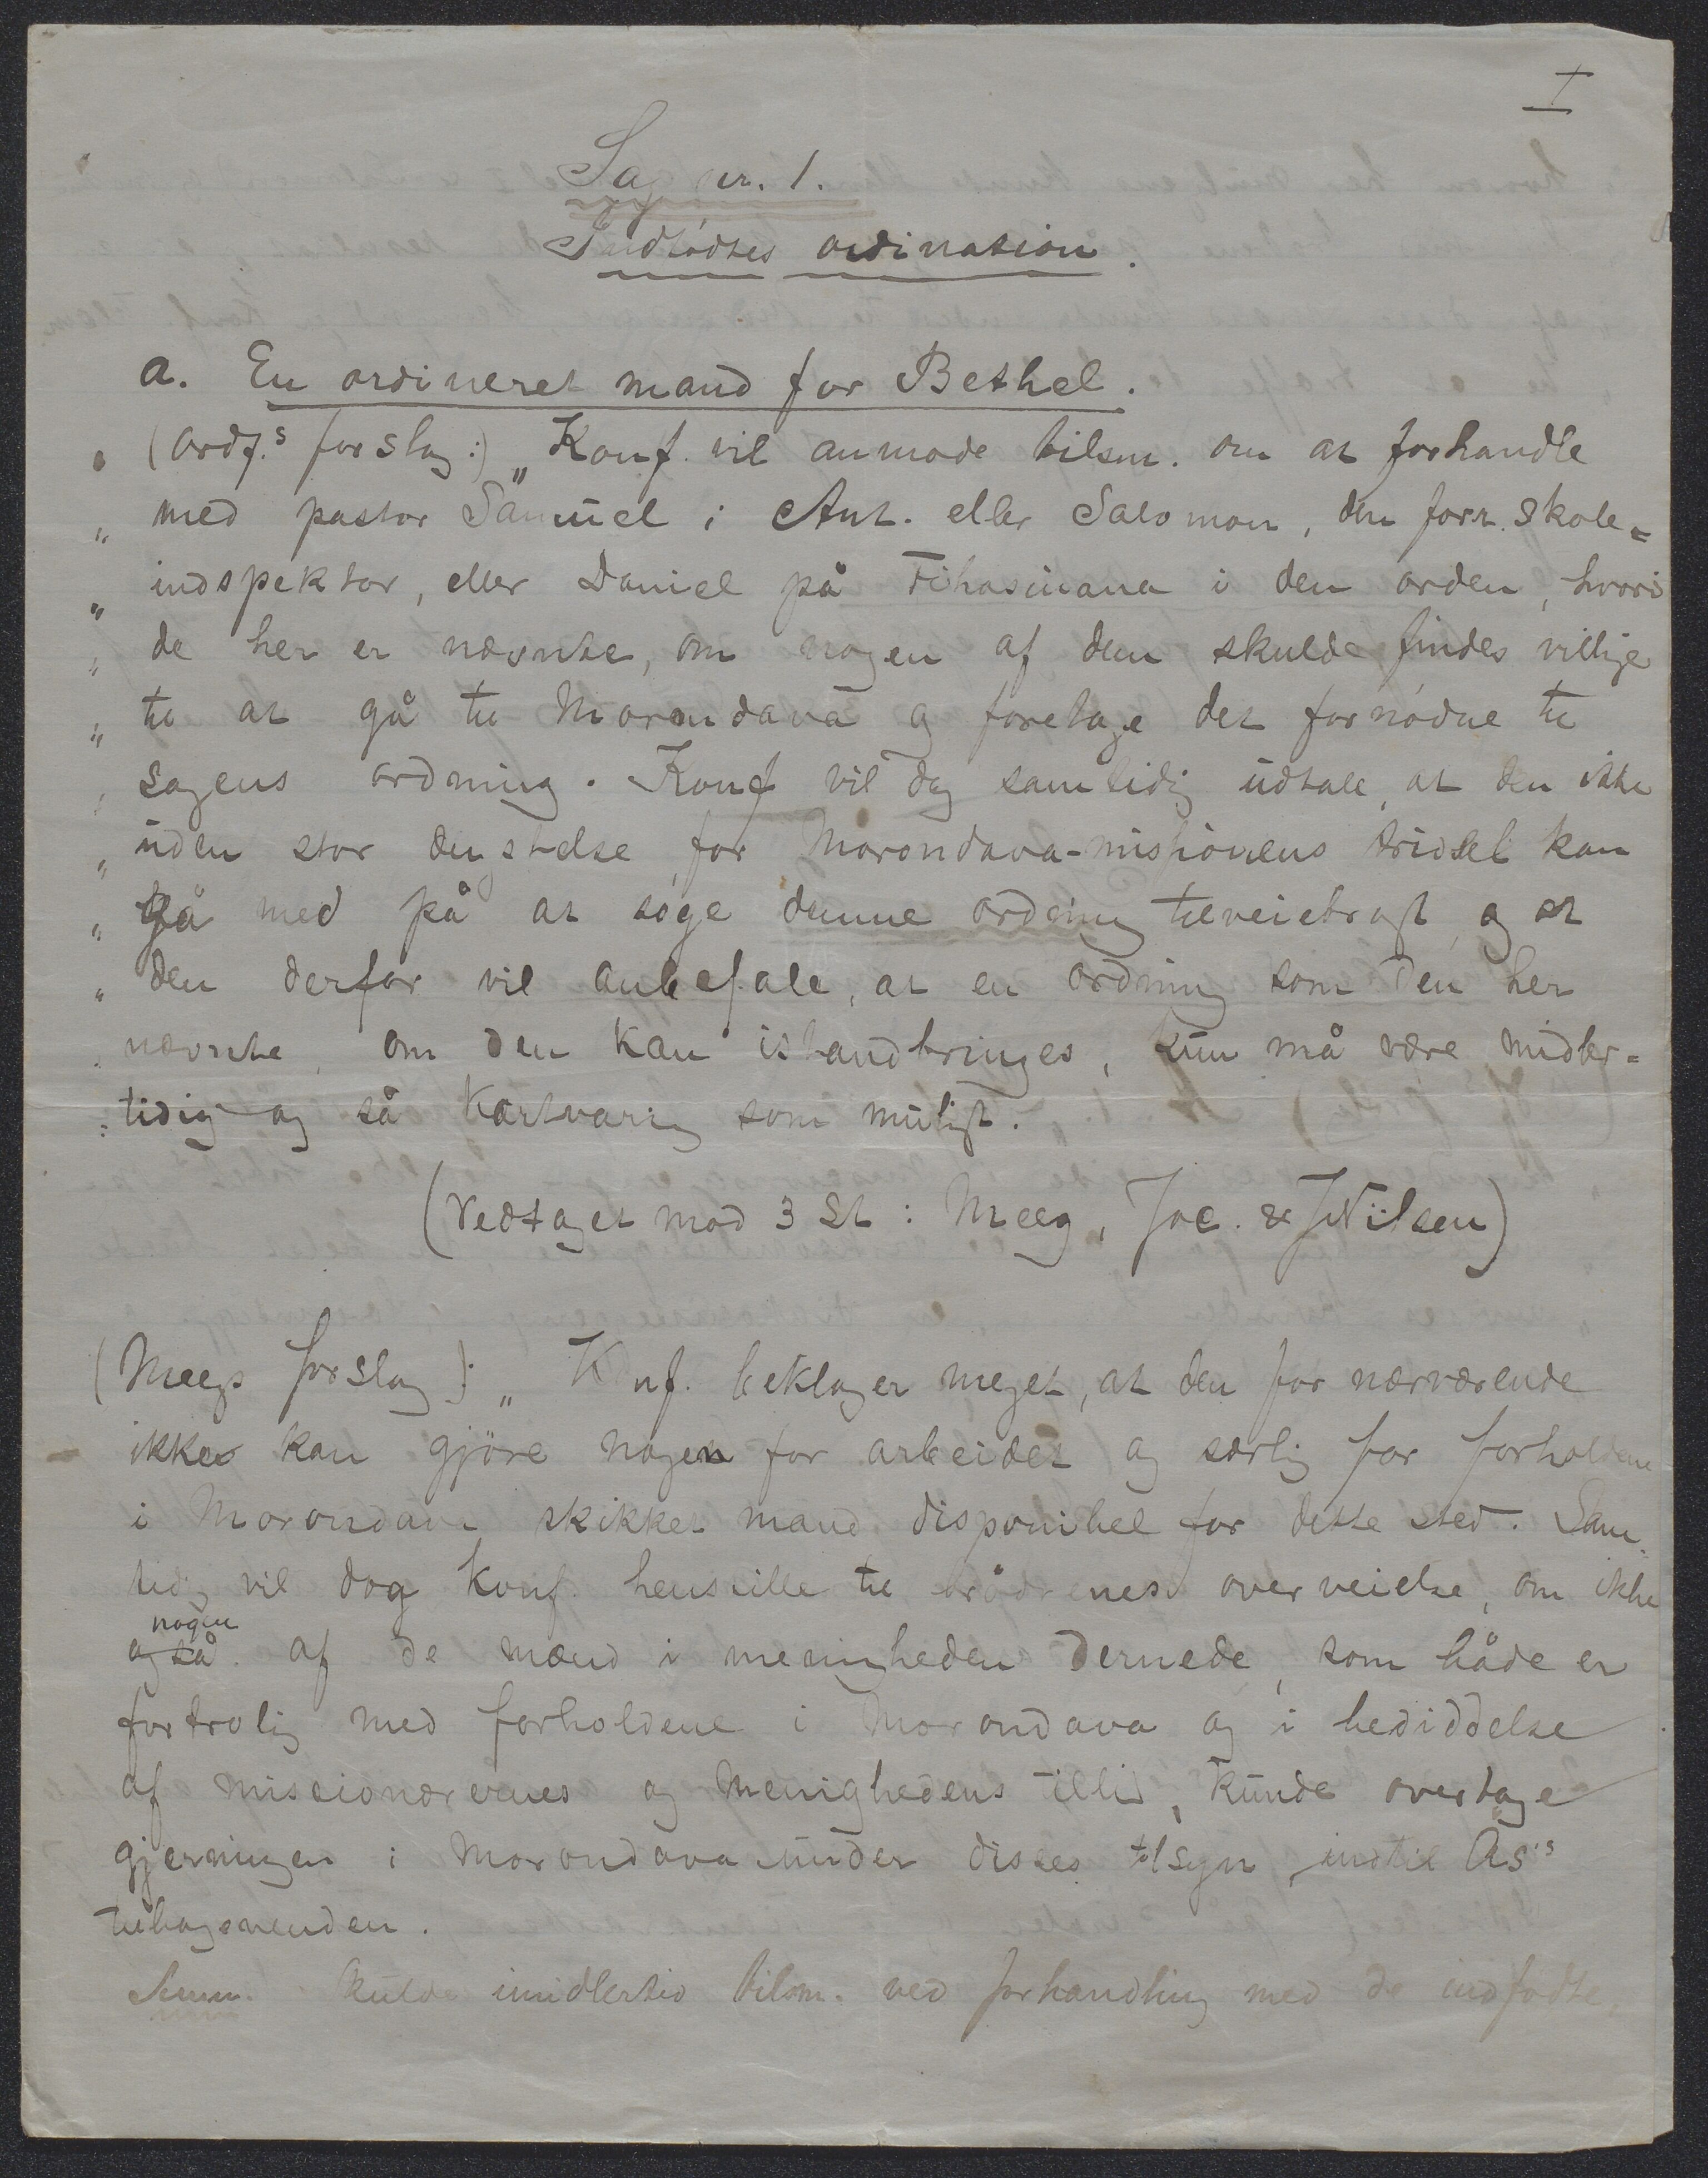 I
Sag nr. 1.
Indfødtes ordination.
a. En ordineret mand for Bethel.
(Ordf.s forslag:) „Konf. vil anmode tilsm. om at forhandle
„ med pastor Samuel i Ant. eller Salomon, den forr. skole=
„ indspektør, eller Daniel på Fihasinana i den orden, hvori
„ de her er nævnte, om nogen af dem skulde findes villige
„ til at gå til Morondava og foretage det fornødne til
„ sagens ordning. Konf vil dog samtidig udtale, at den ikke
„ uden stor ængstelse for Morondava-missionens trivsel kan
„ gå med på at søge denne ordning tilveiebragt, og at
„ den derfor vil anbefale, at en ordning som den her
„ nævnte, om den kan istandbringes, kun må være midler=
„ tidig og så kortvarig som muligt.
(Vedtaget mod 3 St: Meeg, Joc. & JNilsen)
(Meegs forslag): „Konf. beklager meget, at den for nærværende
ikke kan gjöre nogen for arbeidet og særlig for forholdene
i Morondava skikket mand disponibel for dette sted. Sam-
tidig vil dog konf. henstille til brødrenes overveielse, om ikke
nogen
også af de mænd i menigheden dernede, som både er
fortrolig med forholdene i Morondava og i besiddelse
af missionærernes og menighedens tillid, kunde overtage
gjerningen i Morondava under disses tilsyn, indtil As's
tilbagevenden.
kulde imidlertid tilsm. ved forhandling med de indfødte,